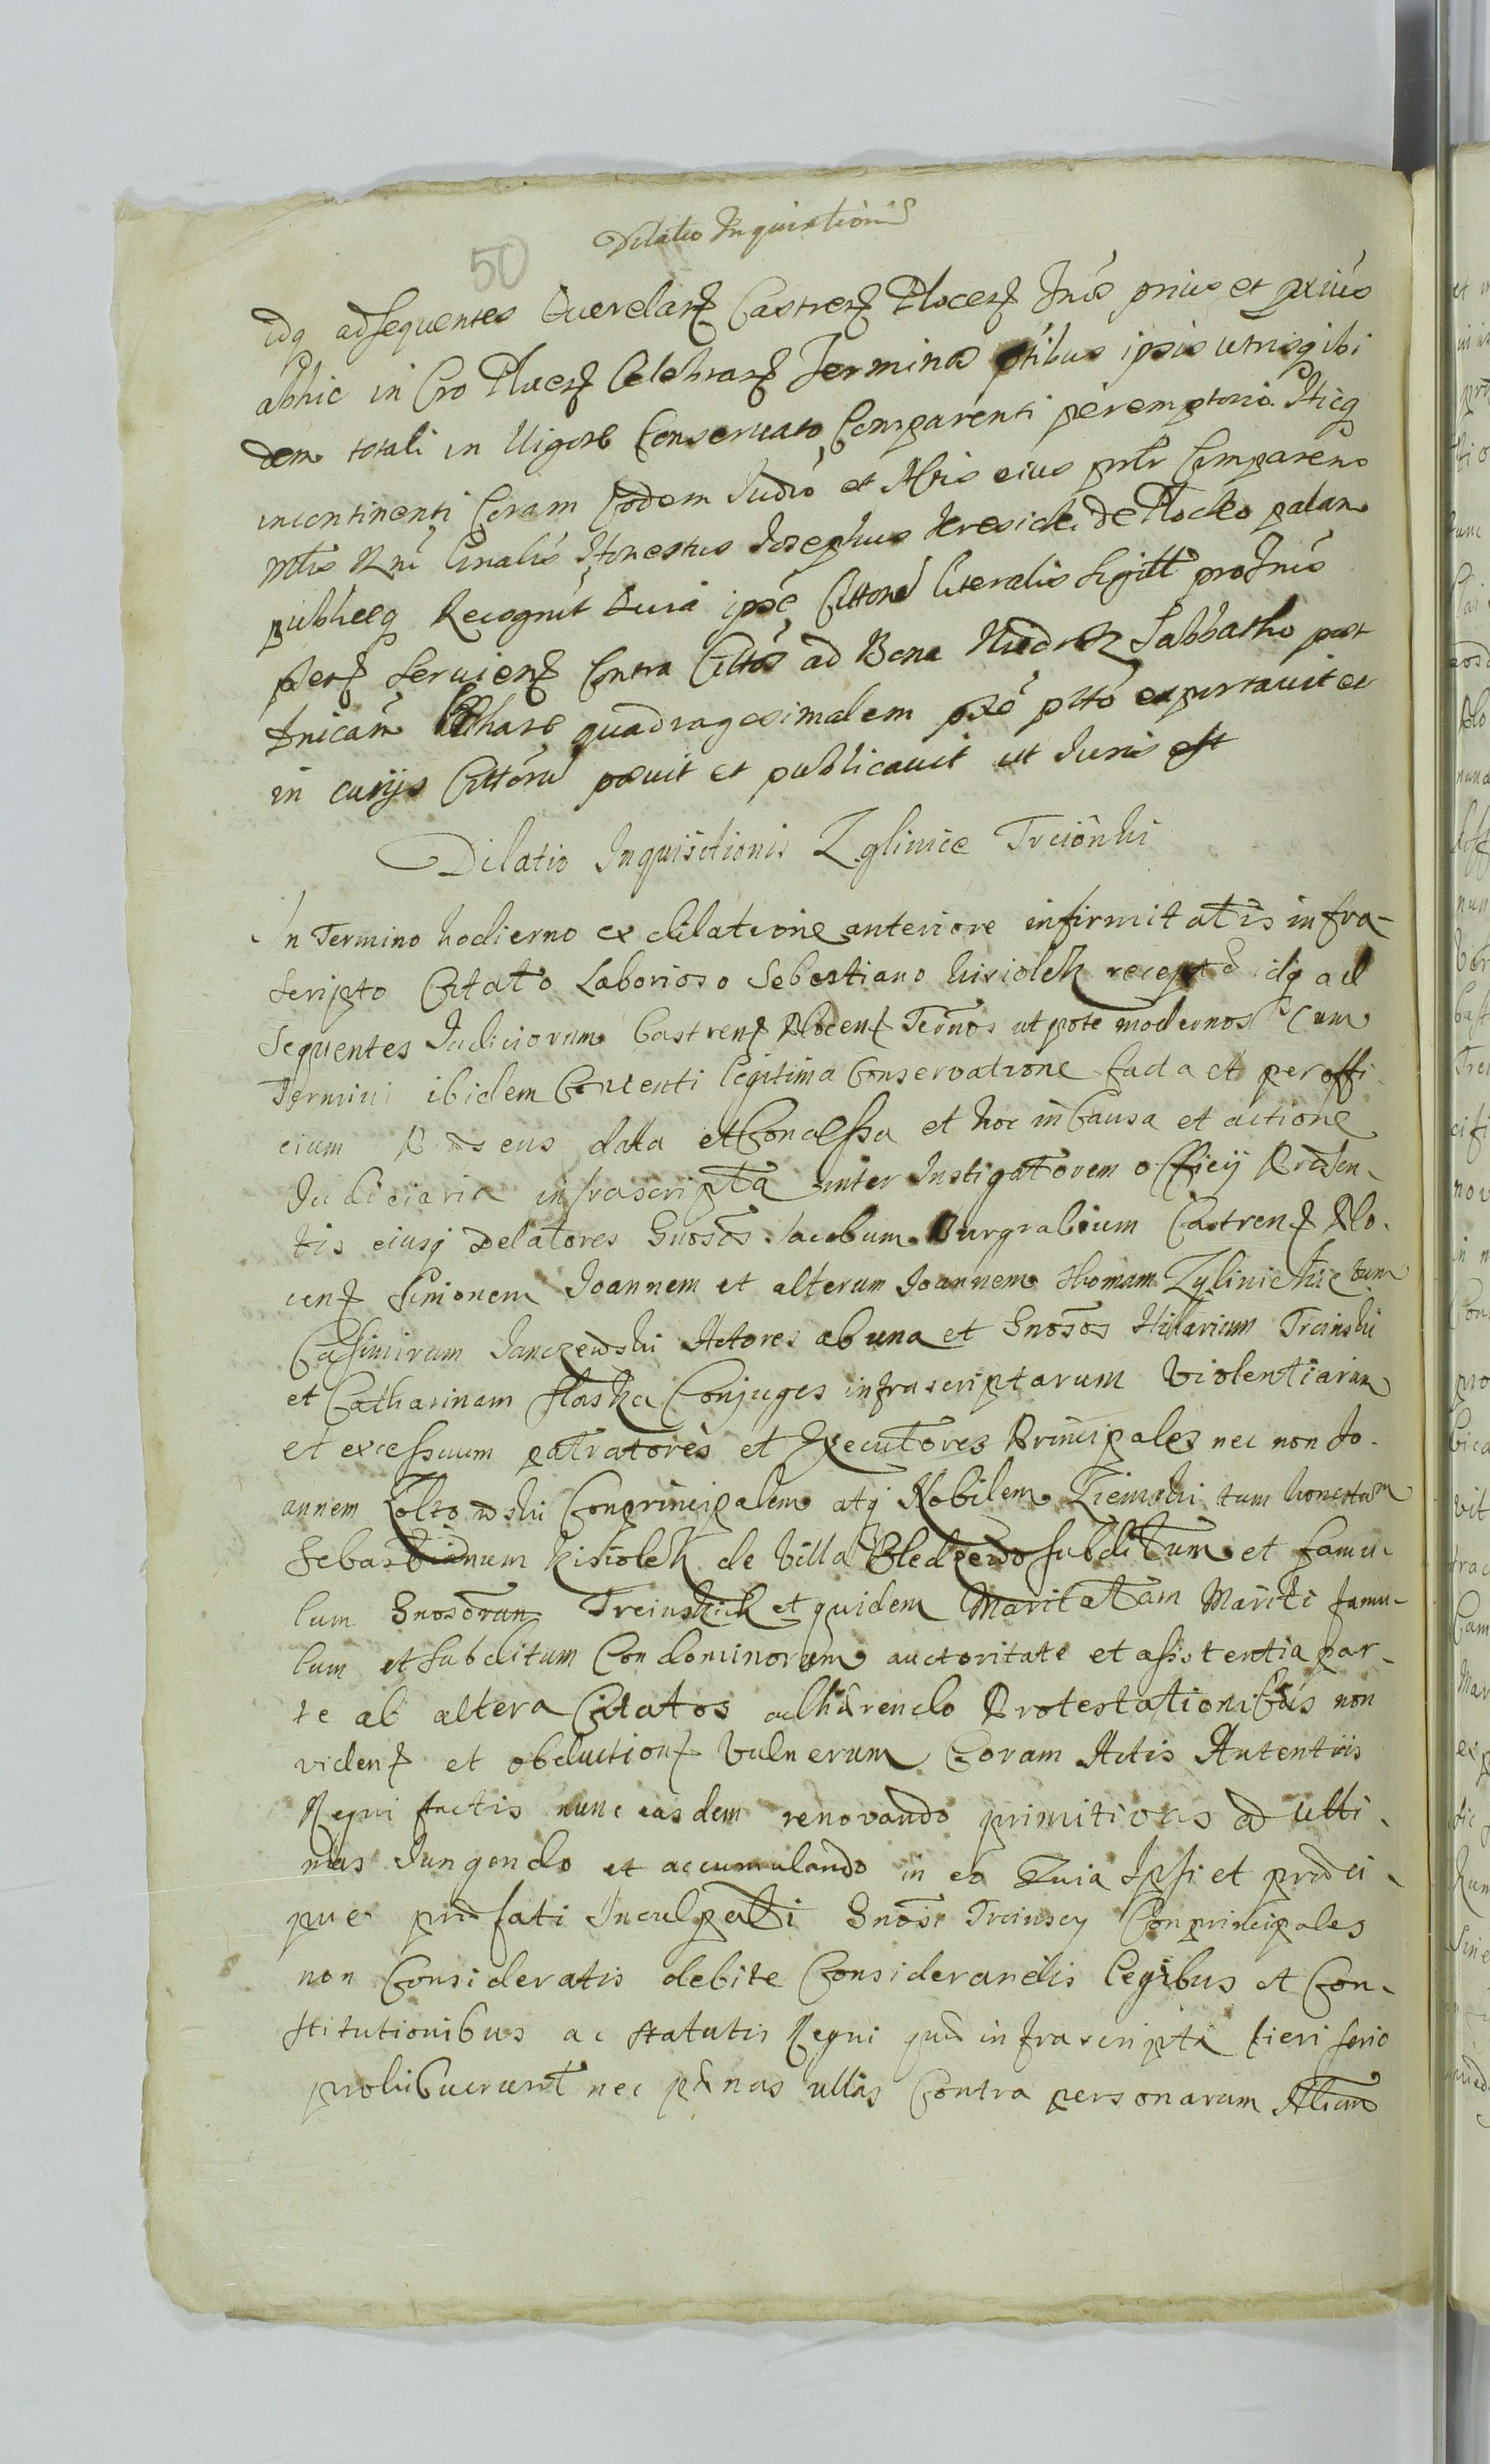 Dilatio Inquisitionis
50
idq adsequentes Querelarz Castrenz Plocenz Jnōs prius et prius
abhic in Cro Plocenz Celebrarz Terminos ptibus ipsis utrisq ibi
dem totali in Uigore Conseruato Comparenti peremptorio. Hicq
incontinenti Coram Eodem Judio et Actis eius prntr Comparens
Mtrs Rni Gnalis Honestus Josephus de Plocko palam
publiceq Recognit Quia ipse Cittone literalis Sigill pro
serz seruienz Contra Cittos ad Bona Sabbatho post
Dnicam quadragesimalem pxe ptto exportauit et
in curijs Cittoru posuit et publicauit ut Juris est
Dilatio Inquisitionis Zglinice Trcionski
In Termino hodierno ex dilatione anteriore infirmitatis infra-
scripto Citato Laborioso Sebestiano kisiolek recepta idq ad
Sequentes Judiciorum Castrenz Plocenz Termnos ut pote modernos Cum
Termini ibidem Contenti legitima Conservatione facta et per offi
cium Prdsens data et Concessa et hoc in Causa et actione
Judiciaria infrascripta inter Instigatorem officij Prdsen-
tis eiusq Delatores Gnosos Jacobum Burgrabium Castrenz Plo-
cenz Simonem Joannem et alterum Joannem Thomam Zglinickie tum
Casimirum Janczewski Actores ab una et Gnosos Hillarium Trcinski
et Catharinam flaska Conjuges infrascriptarum Violentiarum
et excessuum patratores et Execiutores Principales nec non Jo-
annem Zoltowski Conprincipalem atq Nobilem Ziemski tum honestum
Sebastianum kisiolek de Villa Bledzewo subditum et famu-
lum Gnosorum Trcinskich et quidem Maritatam Mariti famu-
lum et subditum Condominorum auctoritate et assistentia par-
te ab altera Citatos adhærendo Protestationibus non
videnz et obductionz Vulnerum Coram Actis Autenticis
Regni factis nunc easdem renovando primitivas ad ulti-
mas Jungendo et accumulando in eo Quia Ipsi et prædci-
pue prdfati Inculpati Gnosi Trcinscy Conprincipales
non Consideratis debite Considerandis legibus et Con-
stitutionibus ac statutis Regni quæ infrascripta fieri serio
prohibuerunt nec pænas ullas Contra personarum Alicuius